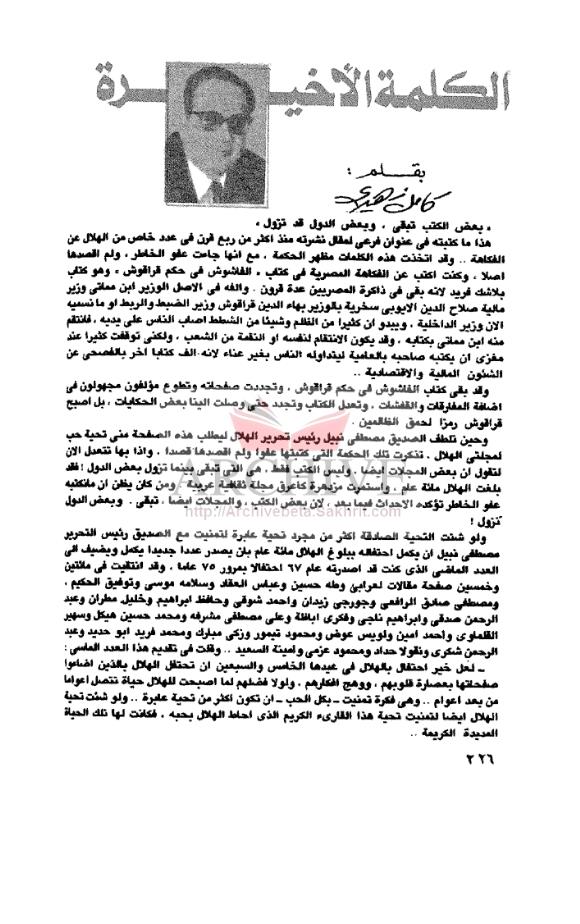 الكلمة الأخيرة
بقلم :
كامل زهيرى
« بعض الكتب تبقى ، وبعض الدول قد تزول »
هذا ما كتبته فى عنوان فرعى لمقال نشرته منذ اكثر من ربع قرن فى عدد خاص من الهلال عن
الفكاهة .. وقد اتخذت هذه الكلمات مظهر الحكمة ، مع انها جاءت عفو الخاطر ، ولم اقصدها
اصلا ، وكنت اكتب عن الفكاهة المصرية فى كتاب « الفاشوش فى حكم قراقوش » وهو كتاب
بلاشك فريد لانه بقى فى ذاكرة المصريين عدة قرون . والفه فى الاصل الوزير ابن مماتى وزير
مالية صلاح الدين الايوبى سخرية بالوزير بهاء الدين قراقوش وزير الضبط والربط او ما نسميه
الان وزير الداخلية ، ويبدو ان كثيرا من الظلم وشيئا من الشطط اصاب الناس على يديه ، فانتقم
منه ابن مماتى بكتابه ، وقد يكون الانتقام لنفسه او النقمة من الشعب ، ولكنى توقفت كثيرا عند
مغزى ان يكتبه صاحبه بالعامية ليتداوله الناس بغير عناء لانه الف كتابا اخر بالفصحى عن
الشئون المالية والاقتصادية ..
وقد بقى كتاب الفاشوش فى حكم قراقوش ، وتجددت صفحاته وتطوع مؤلفون مجهولون فى
اضافة المفارقات والقفشات ، وتعدل الكتاب وتجدد حتى وصلت الينا بعض الحكايات ، بل اصبح
قراقوش رمزا لحمق الظالمين .
وحين تلطف الصديق مصطفى نبيل رئيس تحرير الهلال ليطلب هذه الصفحة منى تحية حب
لمجلتى الهلال . تذكرت تلك الحكمة التى كتبتها عفوا ولم اقصدها قصدا . واذا بها تتعدل الان
لتقول ان بعض المجلات ايضا . وليس الكتب فقط ، هى التى تبقى بينما تزول بعض الدول ؛ فقد
بلغت الهلال مائة عام . واستمرت مزدهرة كاعرق مجلة ثقافية عربية . ومن كان يظن ان ماتكتبه
عفو الخاطر تؤكده الاحداث فيما بعد ، لان بعض الكتب ، والمجلات ايضا ، تبقى . وبعض الدول
تزول !
ولو شئت التحية الصادقة اكثر من مجرد تحية عابرة لتمنيت مع الصديق رئيس التحرير
مصطفى نبيل ان يكمل احتفاله ببلوغ الهلال مائة عام بان يصدر عددا جديدا يكمل ويضيف الى
العدد الماضى الذى كنت قد اصدرته عام ٦٧ احتفالا بمرور ٧٥ عاما ، وقد انتقيت فى مائتين
وخمسين صفحة مقالات لعرابى وطه حسين وعباس العقاد وسلامه موسى وتوفيق الحكيم ،
ومصطفى صادق الرافعى وجورجى زيدان واحمد شوقى وحافظ ابراهيم وخليل مطران وعبد
الرحمن صدقى وابراهيم ناجى وفكرى اباظة وعلى مصطفى مشرفه ومحمد حسين هيكل وسهير
القلماوى واحمد امين ولويس عوض ومحمود تيمور وزكى مبارك ومحمد فريد ابو حديد وعبد
الرحمن شكرى ونقولا حداد ومحمود عزمى وامينة السعيد .. وقلت فى تقديم هذا العدد الماسى :
ـ لعل خير احتفال بالهلال فى عيدها الخامس والسبعين ان تحتفل الهلال بالذين اضاءوا
صفحاتها بعصارة قلوبهم ، ووهج افكارهم . ولولا فضلهم لما اصبحت للهلال حياة تتصل اعواما
من بعد اعوام .. وهى فكرة تمنيت ـ بكل الحب ـ ان تكون اكثر من تحية عابرة .. ولو شئت تحية
الهلال ايضا لتمنيت تحية هذا القارىء الكريم الذى احاط الهلال بحبه ، فكانت لها تلك الحياة
المديدة الكريمة ..
٢٢٦
ARCHIVE
http://Archivebeta.Sakhrit.com